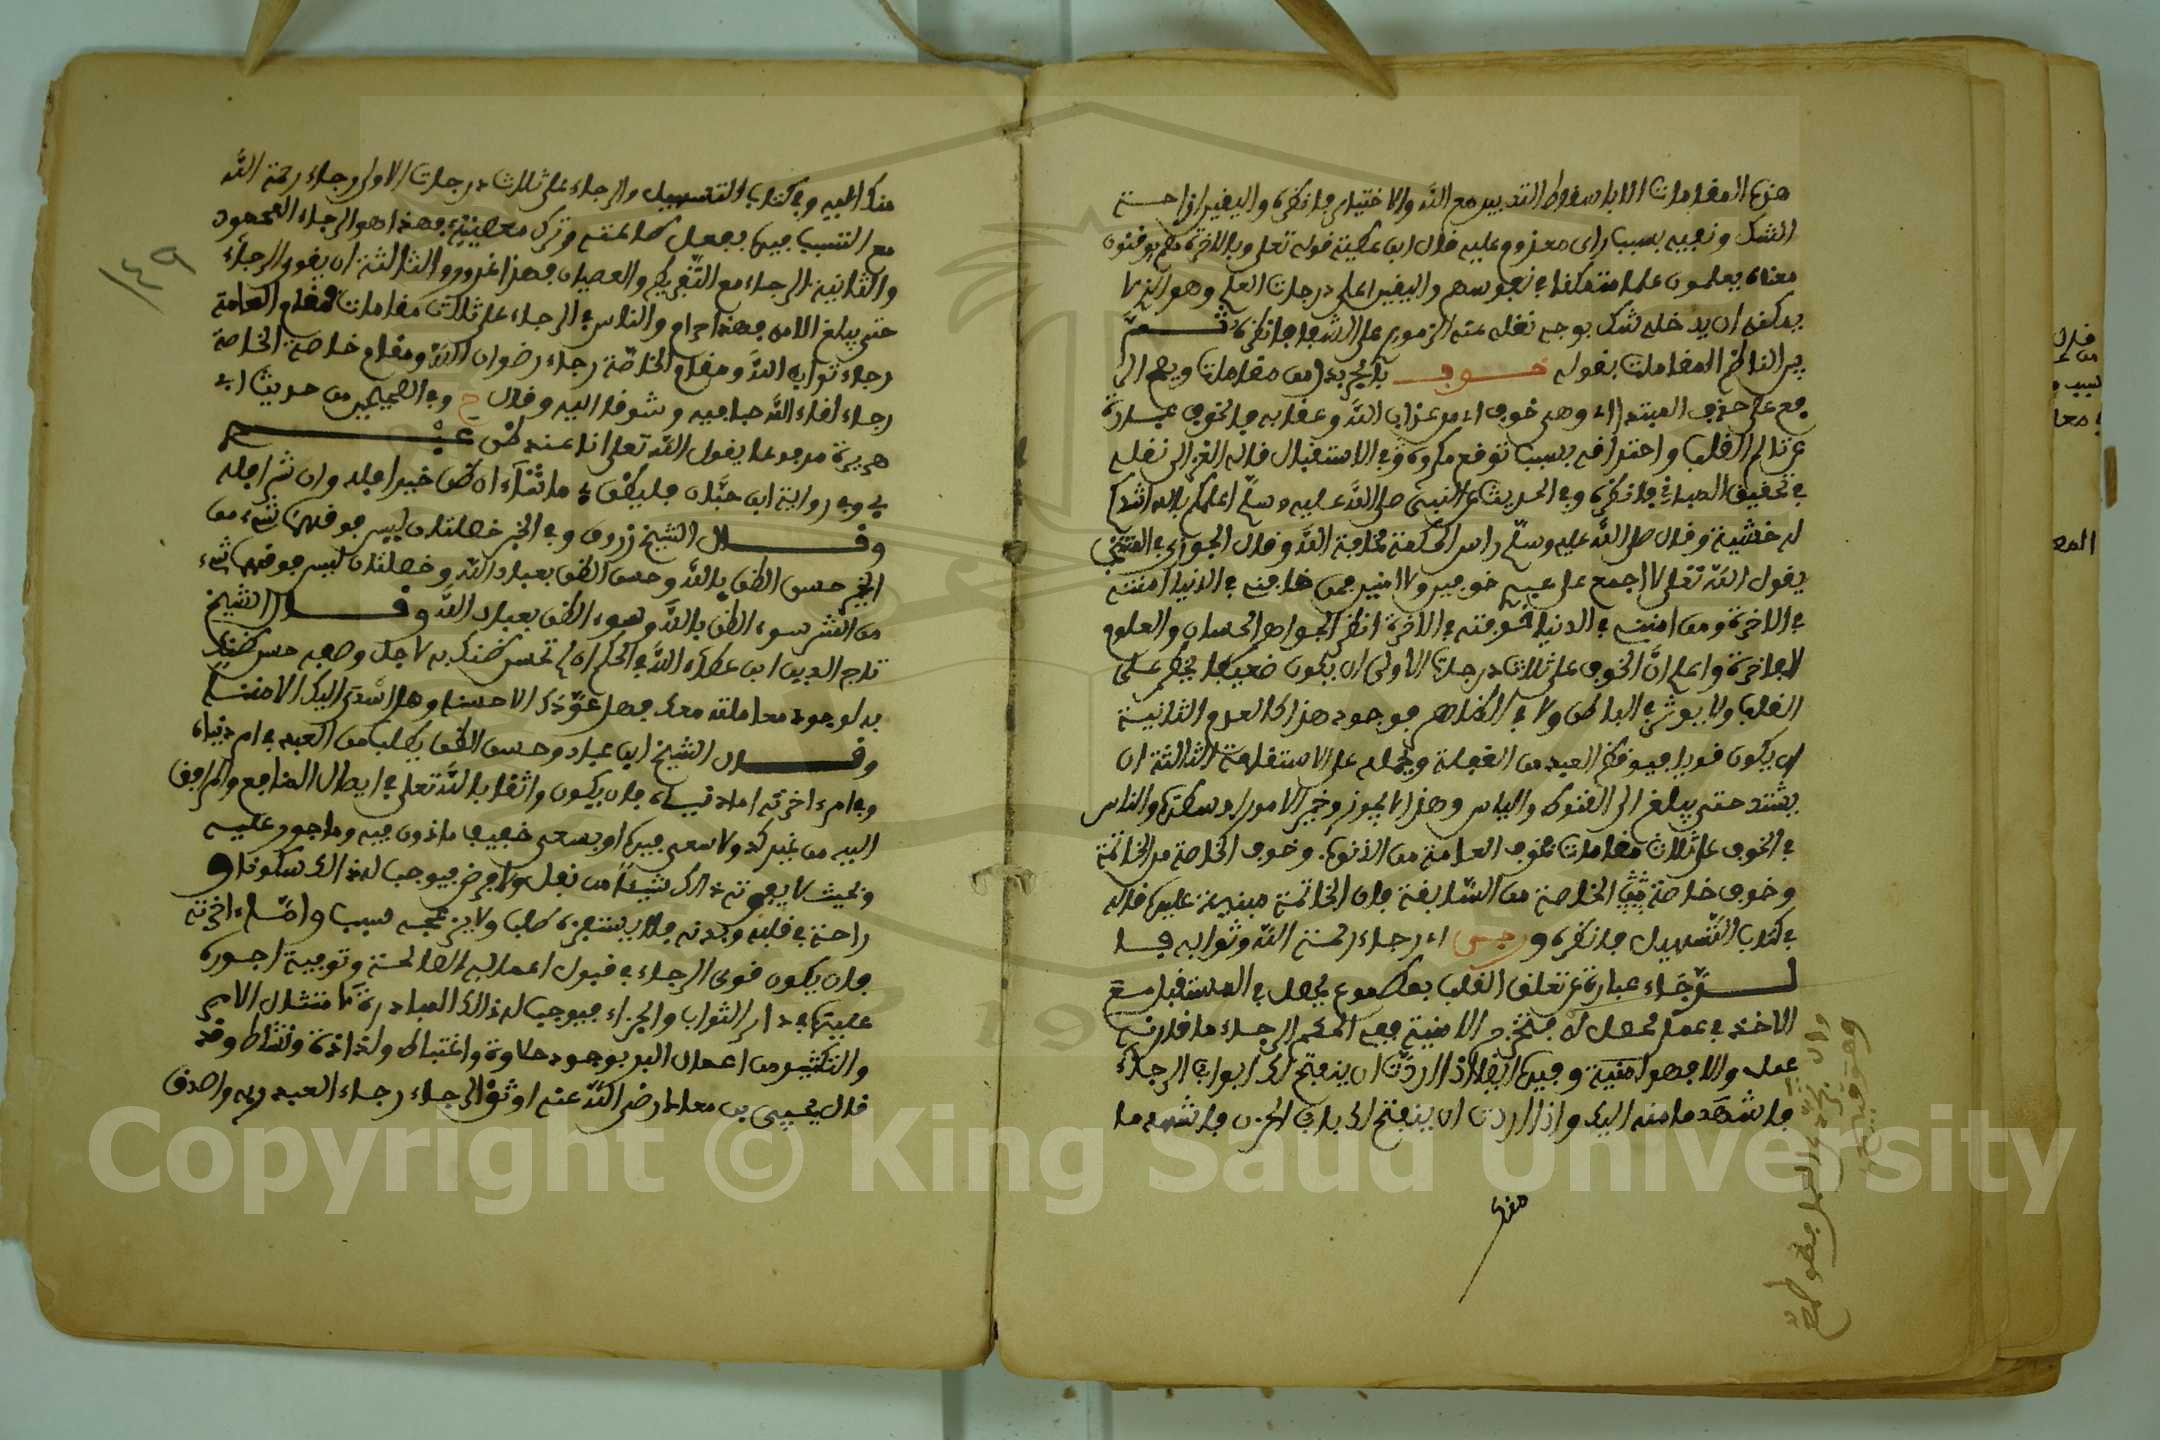 هذه المقامات الا باسقاط التدبير مع الله والاختيار فانظره واليقين ازاحة
الشك ونفيه بسبب وعليه قال ابن عطية قوله تعلى وبالاخرة هم يوقنون
معناه يعلمون علما متمكنا في نفوسهم واليقين اعلى درجات العلم وهو الذي لا
يمكن ان يدخله شك بوجه نقله عنه على الشفا فانظره ثم
بين الناظم المقامات بقوله خوف بالجر بدل من مقامات ويصح الر
فع على حذف المبتدا اي وهي خوف اي من عذاب الله وعقابه فالخوف عبارة
عن تالم القلب واحتراقه بسبب توقع مكروه في الاستقبال قاله الغزالي نقله
في تحقيق المباني فانظره وفي الحديث عن النبي صلى الله عليه وسلم اعلمكم بالله اشدكم
له خشية وقال صلى الله عليه وسلم راس الحكمة مخافة الله وقال الجوزي في المنتخب
يقول الله تعلى لا اجمع على عبدي خوفين ولا امنين فمن خافني في الدنيا امنته
في الاخرة ومن امنني في الدنيا خوفته في الاخرة انظر الجواهر الحسان والعلوم
الفاخرة واعلم ان الخوف على ثلاث درجات الاولى ان يكون ضعيفا يخطر على
القلب ولا يوثر في الباطن ولا في الظاهر فوجود هذا كالعدم الثانية
ان يكون قويا فيوقظ العبد من الغفلة ويحمله على الاستقامة الثالثة ان
يشتد حتى يبلغ الى القنوط والياس وهذا لا يجوز وخير الامور اوسطها والناس
في الخوف على ثلاث مقامات فخوف العامة من الذنوب وخوف الخاصة من الخاتمة
وخوف خاصة الخاصة من السابقة فان الخاتمة مبنية عليها قاله
في كتاب التسهيل فانظره ورجا اي رجاء رحمة الله وثوابه فا
لرجاء عبارة عن تعلق القلب بمطموع يحصل في المستقبل مع
الاخذ في عمل محصل له فتخرج الامنية ففي الحكم الرجاء ما قارنه
عمل والا فهو امنية وفيها ايضا اذا اردت ان ينفتح لك ابواب الرجاء
فاشهد ما منه اليك واذا اردت ان ينفتح لك باب الحزن فاشهد ما
منك
منك اليه وفي كتاب التسهيل والرجاء على ثلاث درجات الاولى رجاء رحمة الله
مع التسبب فيها بفعل طاعته وترك معصيته فهذا هو الرجاء المحمود
والثانية الرجاء مع التفريط والعصيان فهذا غرور والثالثة ان يقوى الرجاء
حتى يبلغ الامن فهذا حرام والناس في الرجاء على ثلاث مقامات فمقام العامة
رجاء ثواب الله ومقام الخاصة رجاء رضوان الله ومقام خاصة الخاصة
رجاء لقاء الله حبا فيه وشوقا اليه وقال ح وفي الصحيحين من حديث ابي
هريرة مرفوعا يقول الله تعلى انا عند ظن عبدي
بي وفي رواية ابن حبان فليظن بي ما شاء ان ظن خيرا فله وان شرا فله
وقال الشيخ زروق وفي الخبر خصلتان ليس فوقهما شيء من
الخير حسن الظن بالله وحسن الظن بعباد الله وخصلتان ليس فوقهما شيء
من الشر سوء الظن بالله وسوء الظن بعباد الله وقال الشيخ
تاج الدين ابن عطاء الله في الحكم ان لم تحسن ظنك به لاجل وصفه حسن ظنك
به لوجود معاملته معك فهل عودك الا حسنا وهل اسدى اليك الا مننا
وقال الشيخ ابن عباد وحسن الظن يطلب من العبد في امر دنياه
وفي امر اخرته اما دنياه فان يكون واثقا بالله تعلى في ايصال المنافع والمرافق
اليه من غير كد ولا سعي فيها او بسعي خفيف ماذون فيه وماجور عليه
وبحيث لا يفوته ذلك شيئا من نفل ولا فرض فيوجب له ذلك سكونا و
راحة في قلبه وبدنه فلا يستفزه طلب ولا يزعجه سبب واما امر اخرته
فان يكون قوي الرجاء في قبول اعماله الصالحة وتوفية اجوره
عليها في دار الثواب والجزاء فيوجب له ذلك المبادرة لامتثال الامر
والتكثير من اعمال البر بوجود حلاوة واغتباط ولذاذة ونشاط وقد
قال يحيى بن معاذ رضي الله عنه اوثق الرجاء رجاء العبد ربه واصدق
١٤٩
Copyright © King Saud University